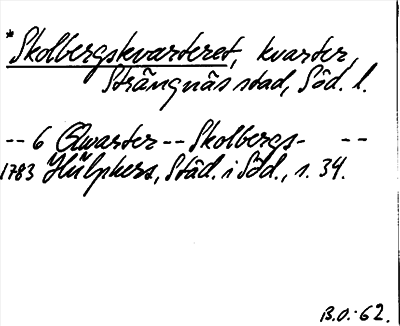 *Skolbergskvarteret, kvarter,
Strängnäs stad, Söd. l.
-- 6 Qwarter -- Skolbergs- --
1783 Hülphers, Städ. i Söd., s. 34.
B.O.:62.